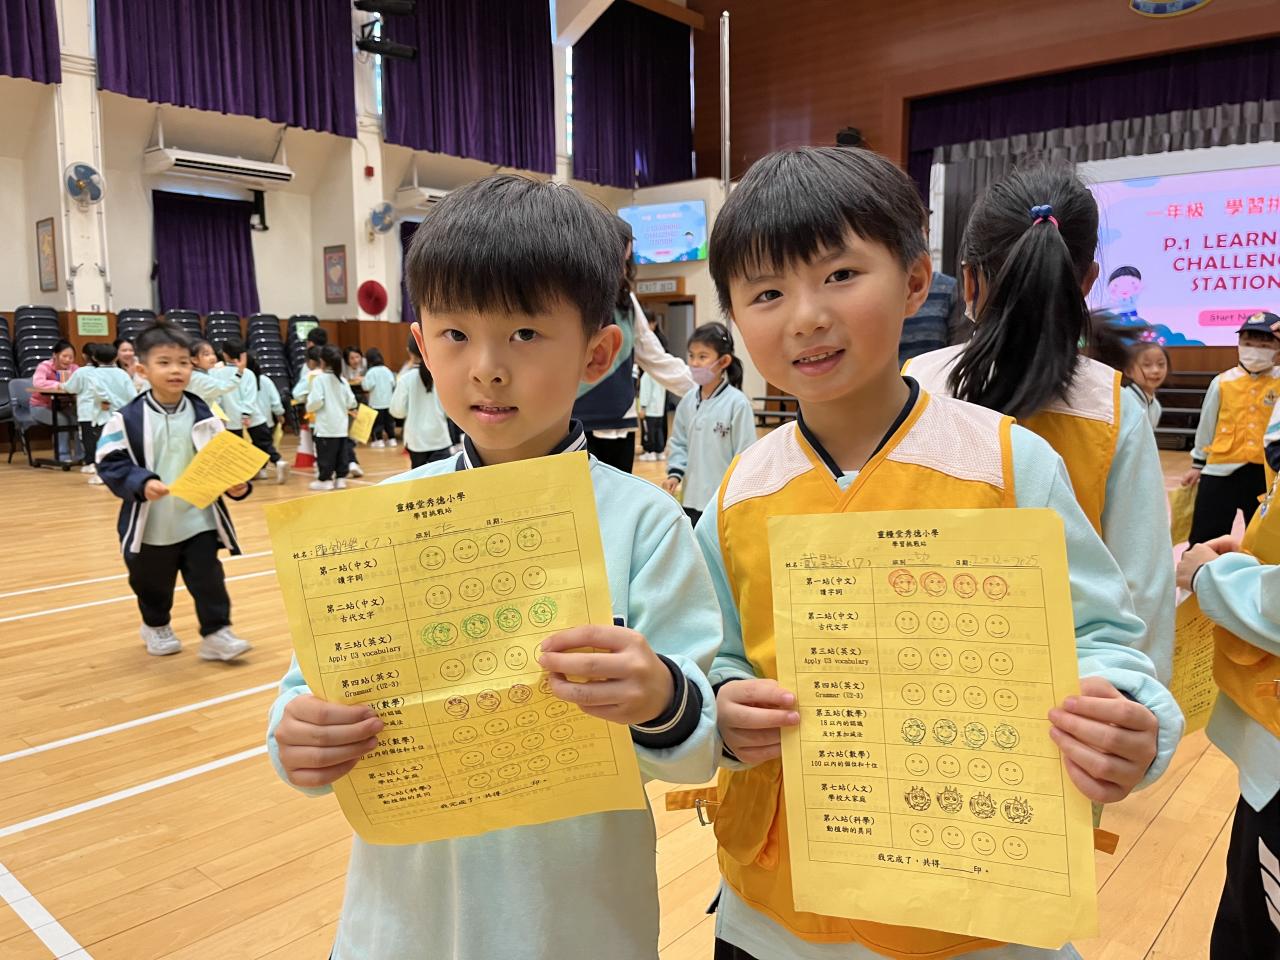 一年級 學習挑
P.1 LEARN
CHALLEN
STATION
Start No
靈糧堂秀德小學
學習挑戰站
姓名: (7) 班別 一仁 日期:
第一站(中文)
讀字詞
第二站(中文)
古代文字
第三站(英文)
Apply U3 vocabulary
第四站(英文)
Grammar (U2-3)
站(數學)
的認識
加減法
站(數學)
0以內的個位和十位
第七站(人文)
學校大家庭
第八站(科學)
動植物的異同
我完成了，共得____印。
靈糧堂秀德小學
學習挑戰站
姓名: 戴 (17) 班別 日期:
第一站(中文)
讀字詞
第二站(中文)
古代文字
第三站(英文)
Apply U3 vocabulary
第四站(英文)
Grammar (U2-3)
第五站(數學)
18以內的認識
及計算加減法
第六站(數學)
100以內的個位和十位
第七站(人文)
學校大家庭
第八站(科學)
動植物的異同
我完成了，共得____印。